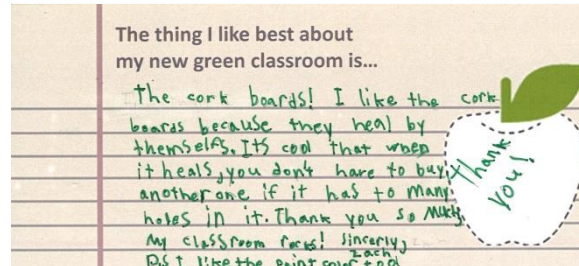 The thing I like best about
my new green classroom is...
The cork boards! I like the cork
boards because they heal by
themselfs. Its cool that when
it heals, you don't have to buy
another one if it has to many
holes in it. Thank you so much,
My classroom rocks! Sincerly,
Zach
P.S I like the paint color too
Thank
You!